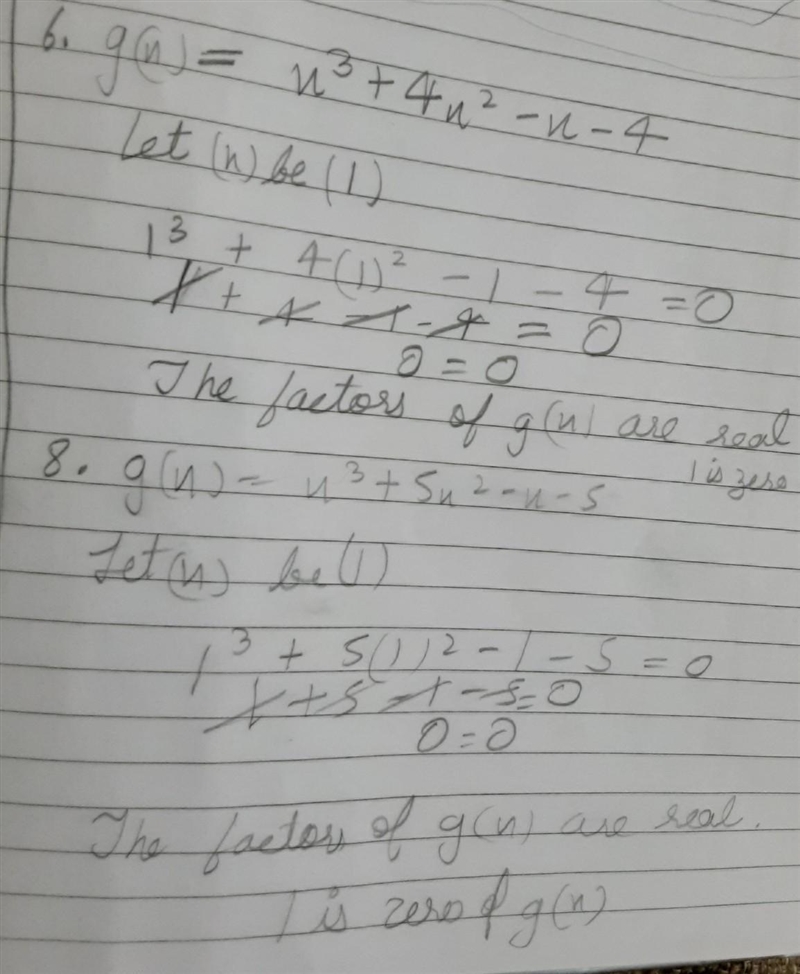 6. g(x) = x³ + 4x² - x - 4
Let (x) be (1)
1³ + 4(1)² - 1 - 4 = 0
1 + 4 - 1 - 4 = 0
0 = 0
The factors of g(x) are real
1 is zero
8. g(x) = x³ + 5x² - x - 5
Let (x) be (1)
1³ + 5(1)² - 1 - 5 = 0
1 + 5 - 1 - 5 = 0
0 = 0
The factors of g(x) are real.
1 is zero of g(x)